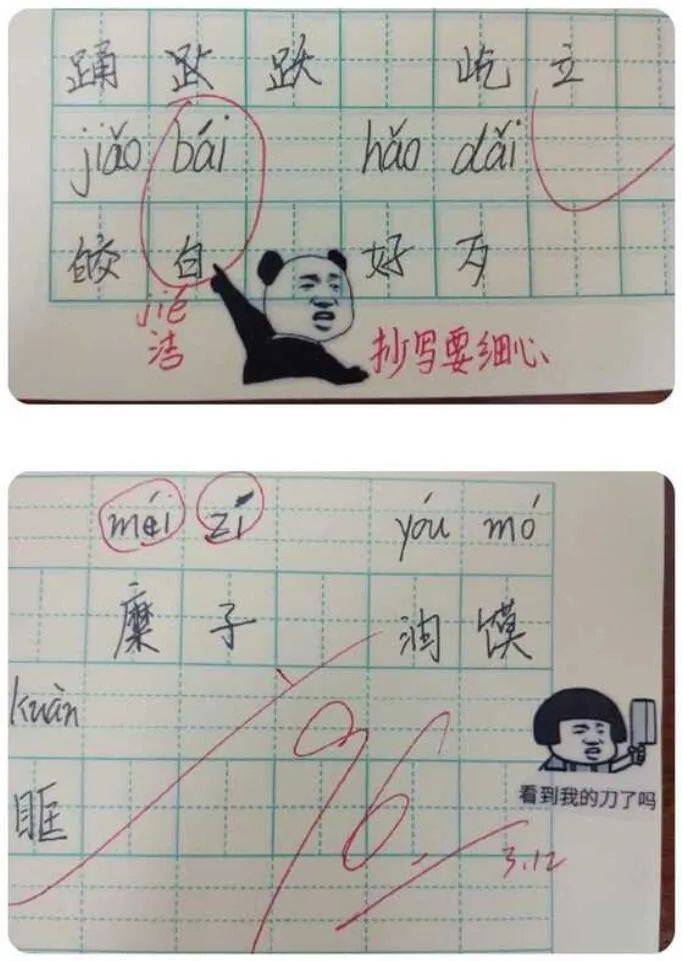 踊 跌 屹 立
jiǎo bái hǎo dǎi
皎 白 好 歹
jié
洁 抄写要细心
méi zí yóu mó
糜 子 油 馍
kuàn
眶
96
看到我的刀了吗
3.12